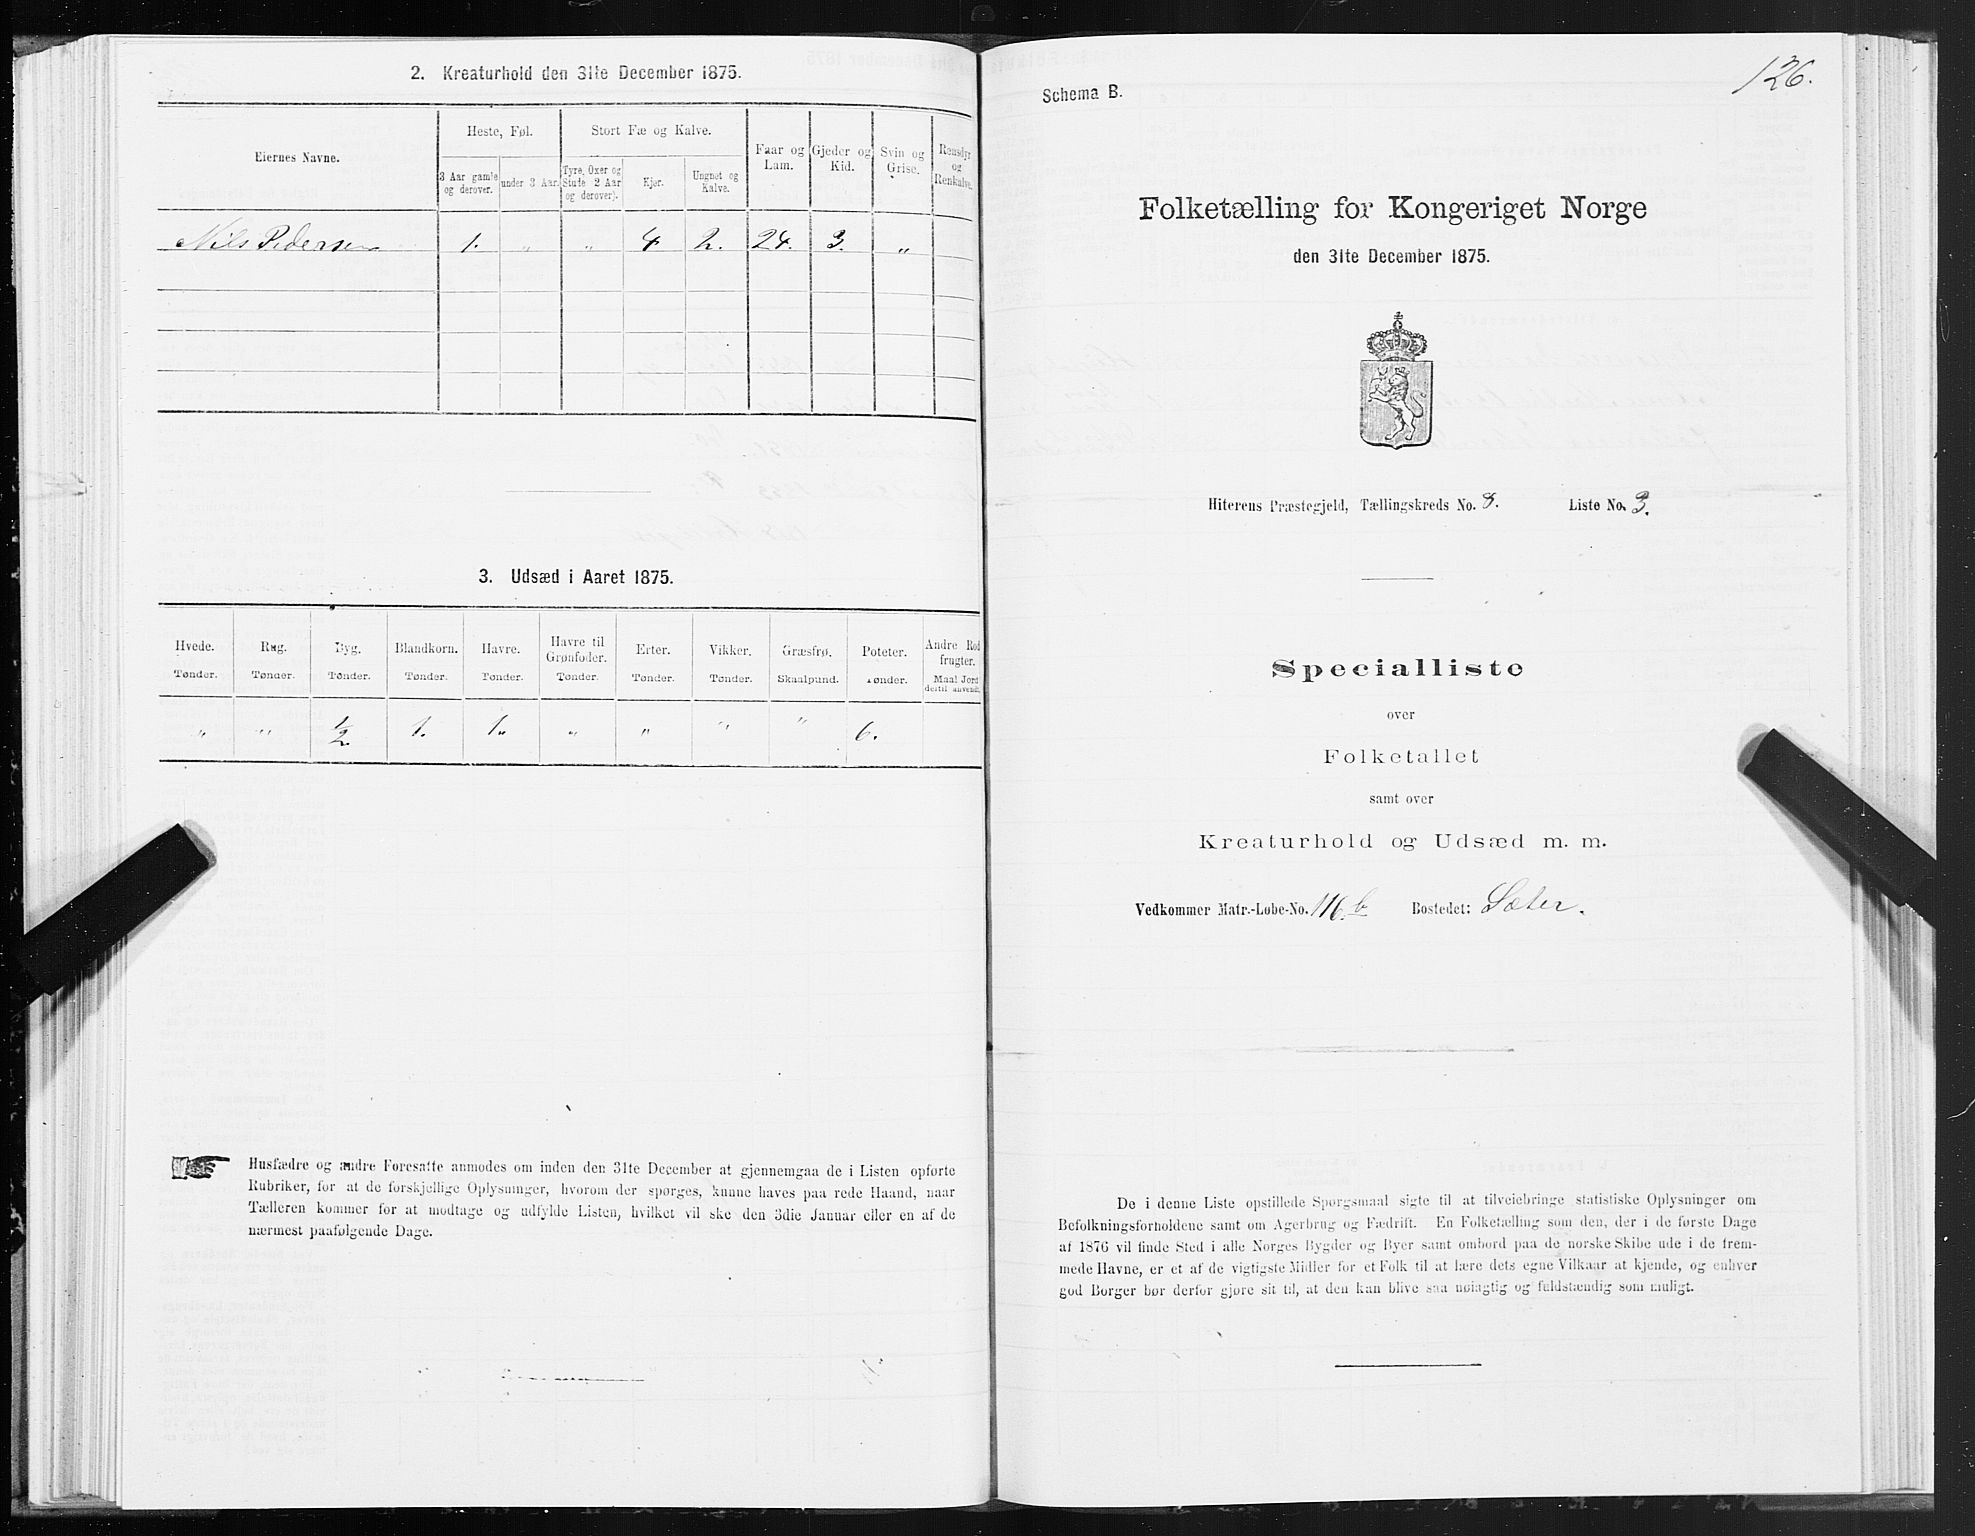 2. Kreaturhold den 31te December 1875.
Eiernes Navne.
Heste, Føl.
Stort Fæ og Kalve.
Faar og Lam.
Gjeder og Kid.
Svin og Grise.
Rensdyr og Renkalve.
3 Aar gamle og derover.
under 3 Aar.
Tyre, Oxer og Stude 2 Aar og derover).
Kjør.
Ungnøt og Kalve.
Nils Pedersen 1. „ „ 4 2. 24. 3. „
3. Udsæd i Aaret 1875.
Hvede. Rug. Byg. Blandkorn. Havre. Havre til Grønfoder. Erter. Vikker. Græsfrø. Poteter. Andre Rodfrugter.
Tønder. Tønder. Tønder. Tønder. Tønder. Tønder. Tønder. Tønder. Skaalpund. Tønder. Maal Jord dertil anvendt.
„ „ 1/2 1. 1. „ „ „ „ 6.
Husfædre og andre Foresatte anmodes om inden den 31te December at gjennemgaa de i Listen opførte
Rubriker, for at de forskjellige Oplysninger, hvorom der spørges, kunne haves paa rede Haand, naar
Tælleren kommer for at modtage og udfylde Listen, hvilket vil ske den 3die Januar eller en af de
nærmest paafølgende Dage.
126.
Schema B.
Folketælling for Kongeriget Norge
den 31te December 1875.
Hiterens Præstegjeld, Tællingskreds No. 8. Liste No. 3.
Specialliste
over
Folketallet
samt over
Kreaturhold og Udsæd m. m.
Vedkommer Matr.-Løbe-No. 116.b Bostedet: Sæter.
De i denne Liste opstillede Spørgsmaal sigte til at tilveiebringe statistiske Oplysninger om
Befolkningsforholdene samt om Agerbrug og Fædrift. En Folketælling som den, der i de første Dage
af 1876 vil finde Sted i alle Norges Bygder og Byer samt ombord paa de norske Skibe ude i de frem-
mede Havne, er et af de vigtigste Midler for et Folk til at lære dets egne Vilkaar at kjende, og enhver
god Borger bør derfor gjøre sit til, at den kan blive saa nøiagtig og fuldstændig som muligt.